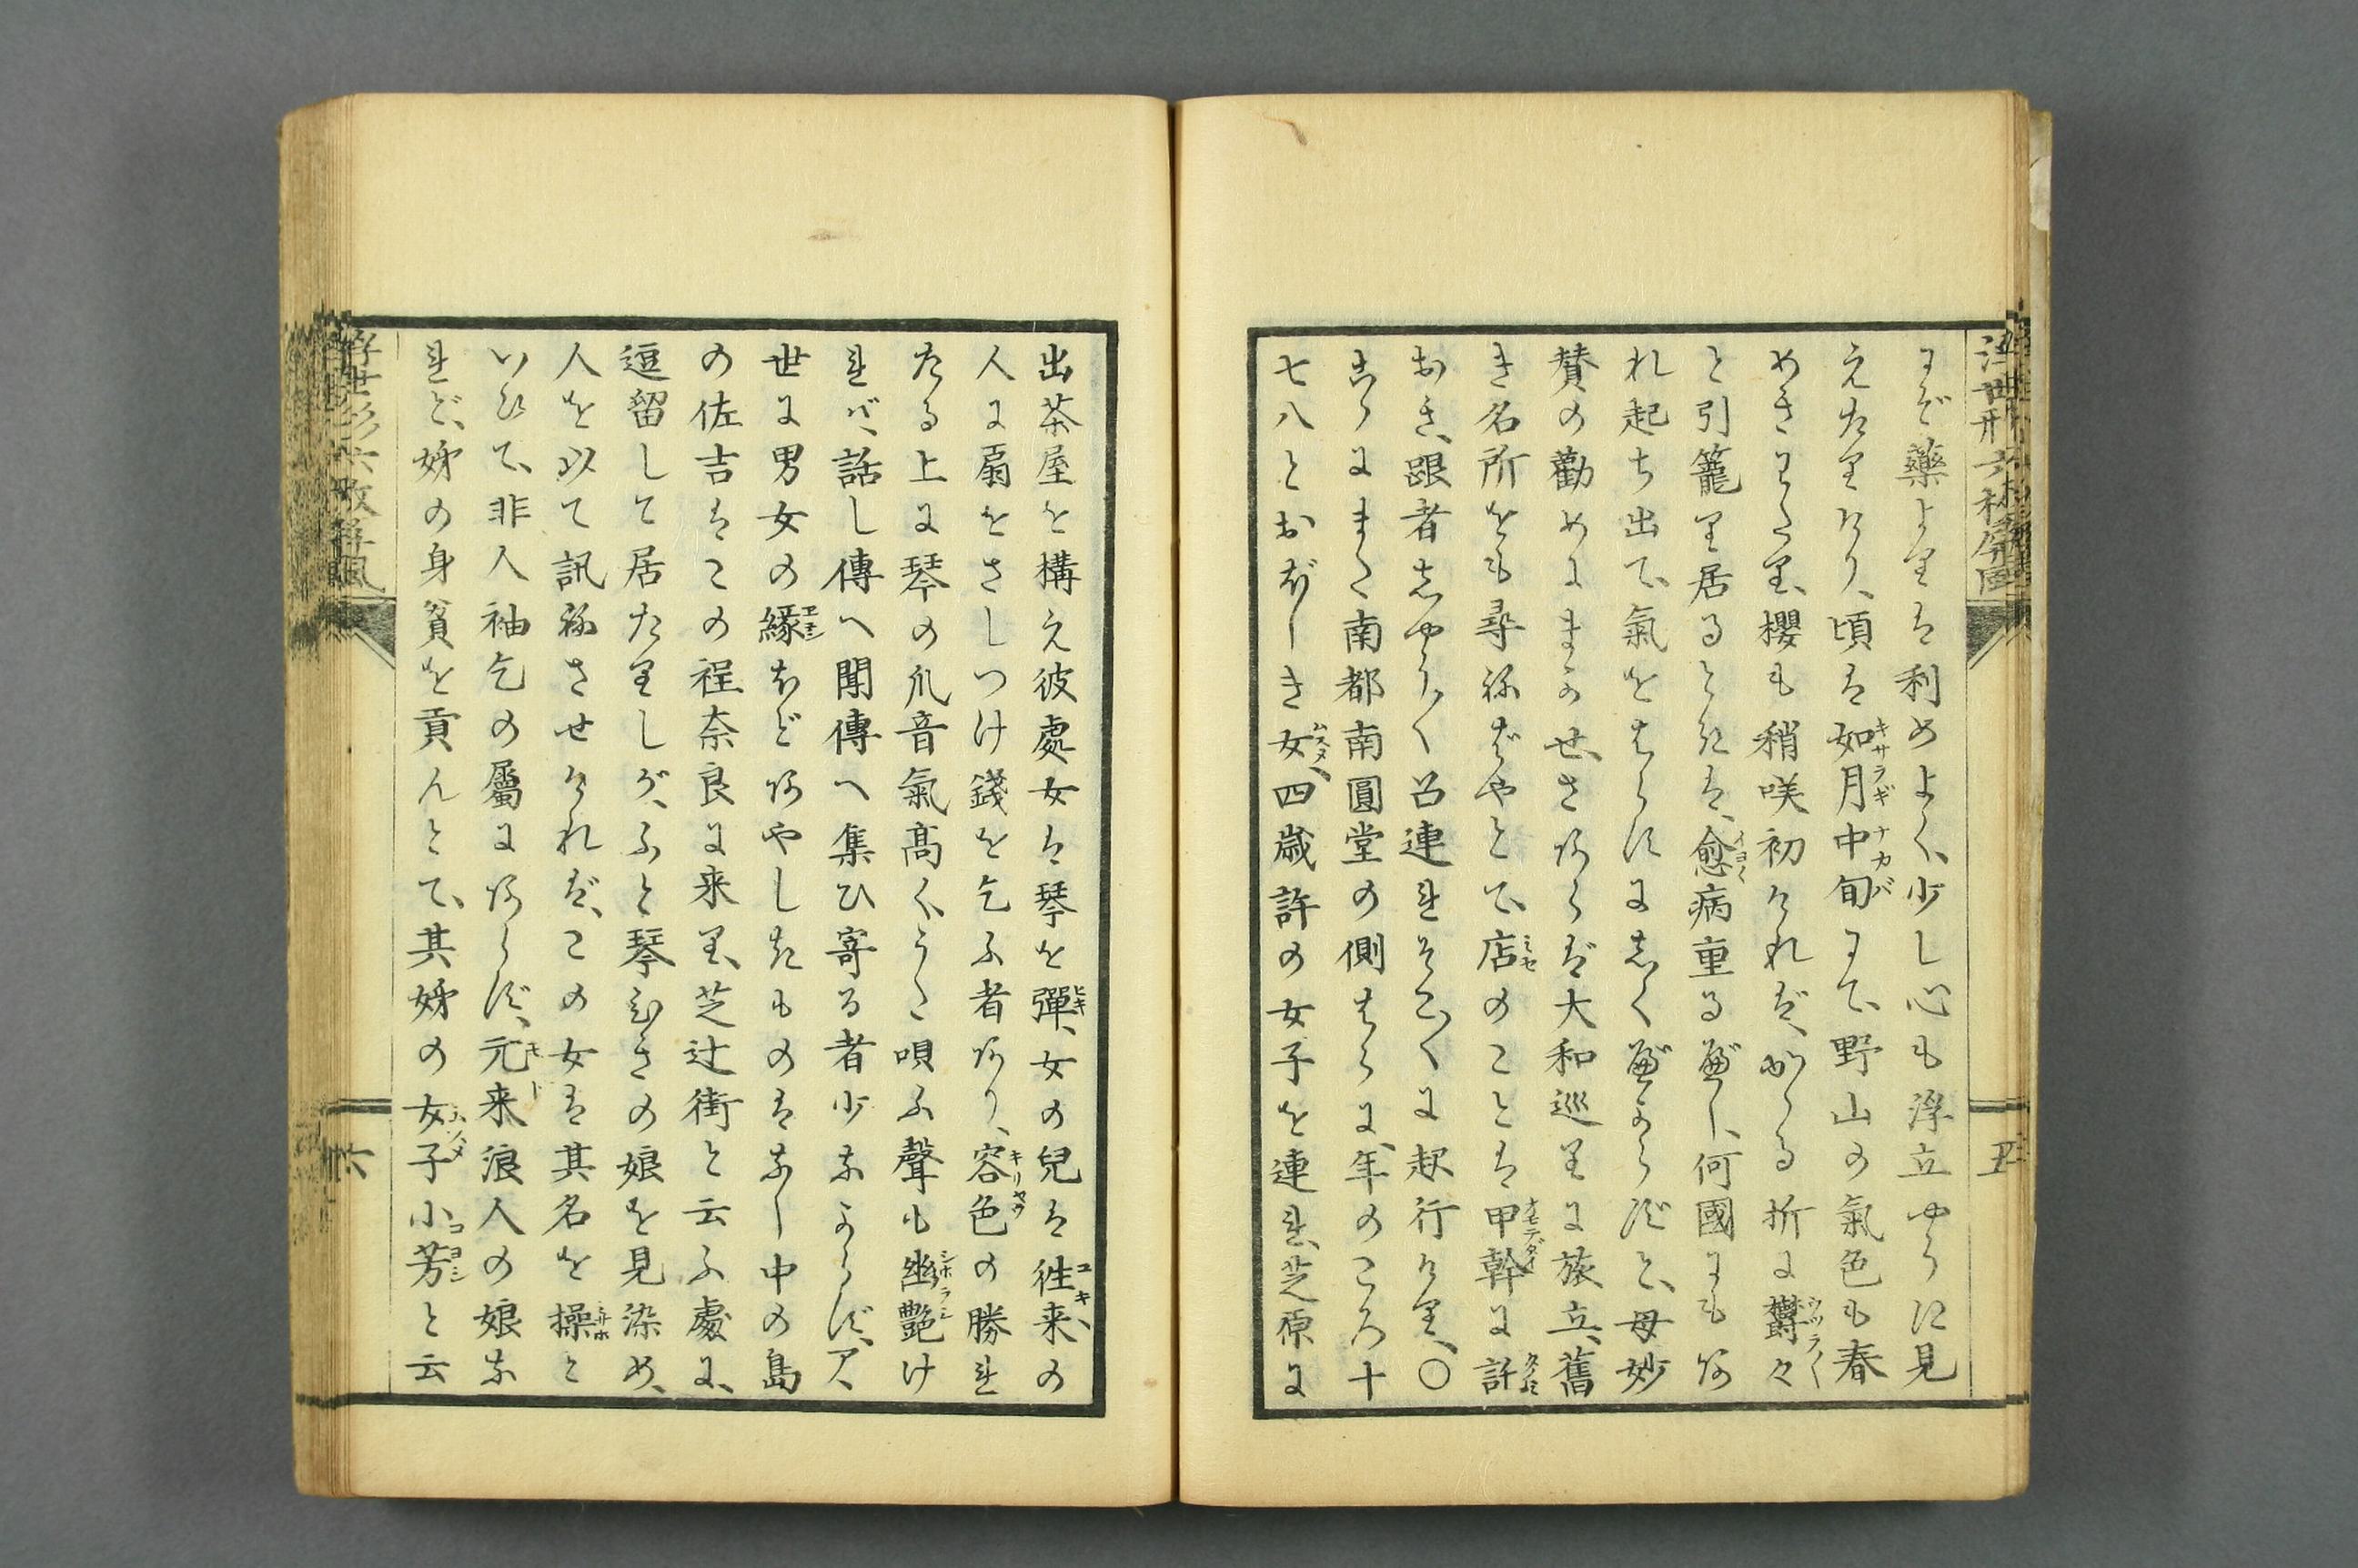 まで藥よりは利めよく、少し心も浮立やうに見
えたりけり、頃は如月中旬まで、野山の氣色も春
めきわたり、櫻も稍咲初ければ、かゝる折に欝々
と引籠り居るときは、愈病重るべし、何國にもあ
れ起ち出て、氣をはらすにしくべからずと、母妙
賛の勸めにまかせ、さあらば大和巡りに旅立、舊
き名所をも尋ねばやとて、店のことは甲幹に託
おき、跟者しやう〴〵召連れそこ〳〵に趐行けり、〇
こゝにまた南都南圓堂の側はらに、年のころ十
七八とおぼしき女、四歳許の女子を連れ、芝原に
出茶屋を構え彼處女は琴を彈、女の兒は徃来の
人に扇をさしつけ錢を乞ふ者あり、容色の勝れ
たる上に琴の爪音氣髙く、うた唄ふ聲も幽艶け
れば、話し傳へ聞傳へ集ひ寄る者少なからず、ア、
世に男女の縁ほどあやしきものはなし中の島
の佐吉はこの程奈良に来り、芝辻街と云ふ處に、
逗留して居たりしが、ふと琴ひきの娘を見染め、
人を以て訊ねさせければ、この女は其名を操と
いひて、非人袖乞の屬にあらず、元来浪人の娘な
れど、姊の身貧を貢んとて、其姊の女子小芳と云
五
六